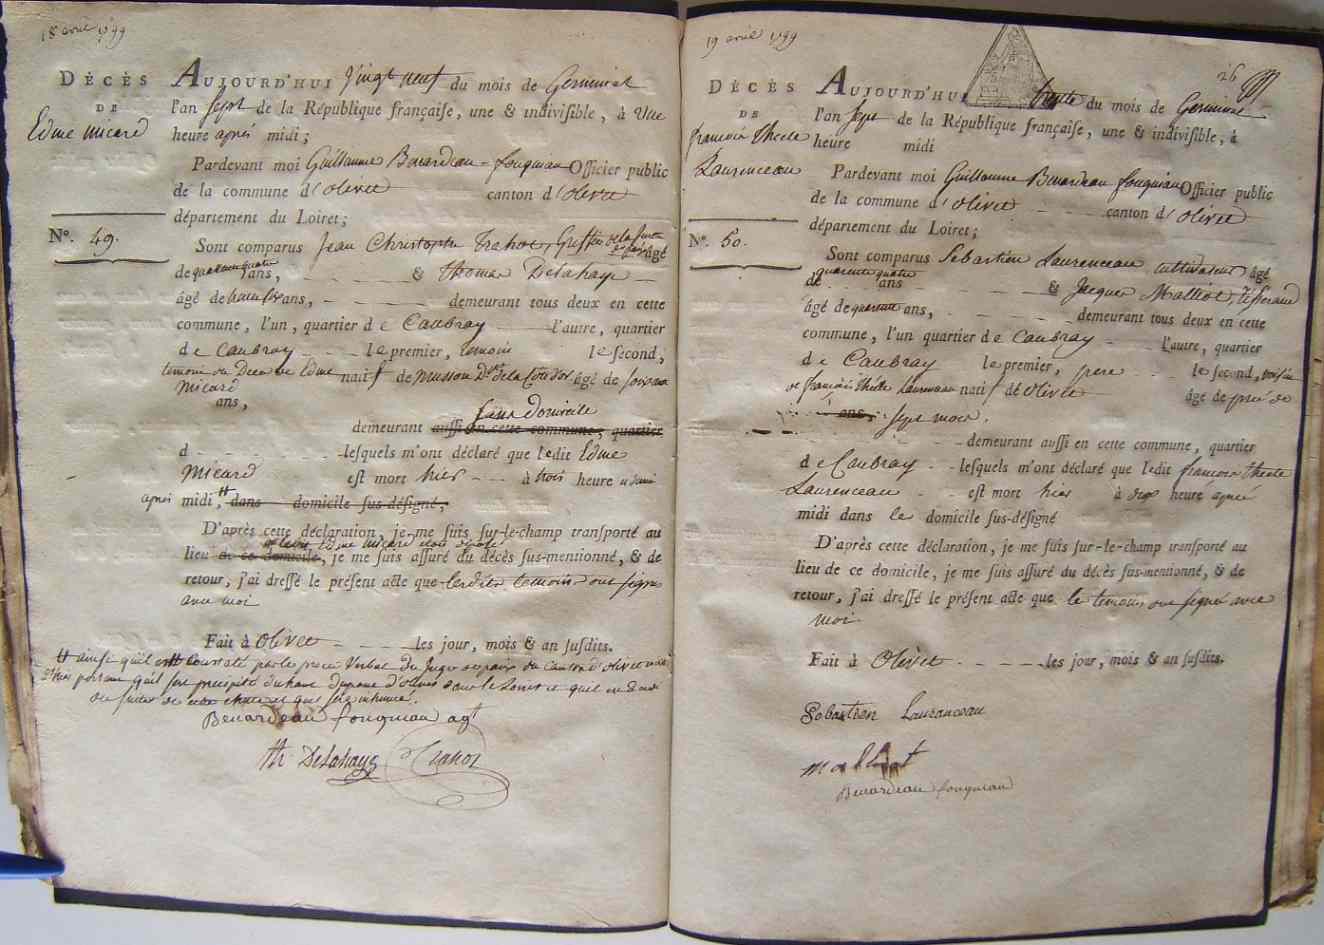 18 avril 1799
DÉCÈS
DE
Edme Micard
N°. 49.
AUJOURD'HUI vingt neuf du mois de Germinal
l'an sept de la République françaiſe, une & indiviſible, à Une
heure après midi;
Pardevant moi Guillaume Benardeau-fougniau Officier public
de la commune d'olivet canton d'olivet
département du Loiret;
Sont comparus Jean Christophe Trahot, Greffier de la Juste
de paix âgé
de quarante quatre ans, & thomas Delahaye
âgé de trente six ans, demeurant tous deux en cette
commune, l'un, quartier de Caubray l'autre, quartier
de Caubray le premier, temoin le ſecond,
temoin du Deces de Edme natif de musson Dt de la Cote d'or âgé de soixante
Micard
ans,
sans Domicile
demeurant auſſi en cette commune, quartier
d leſquels m'ont déclaré que ledit Edme
Micard eſt mort hier à trois heure & demi
après midi, dans domicile ſus-déſigné,
D'après cette déclaration, je me ſuis ſur-le-champ tranſporté au
ledit Edme Micard etoit déposé
lieu de ce domicile, je me ſuis aſſuré du décès ſus-mentionné, & de
retour, j'ai dreſſé le préſent acte que lesdits temoins ont signé
avec moi
Fait à Olivet les jour, mois & an ſuſdits.
ainsi qu'il est constaté par le procès Verbal du Juge de paix du canton d'olivet
portant qu'il s'est precipité du haut du pont d'olivet dans le Loiret et quil
des suites de cette chute et que sera inhumé.
Benardeau fougniau agt
th Delahaye Trahot
19 avril 1799
26
DÉCÈS
DE
francois thecle
Laurenceau
N°. 50.
AUJOURD'HUI trente du mois de Germinal
l'an sept de la République françaiſe, une & indiviſible, à
heure midi
Pardevant moi Guillaume Benardeau fougniau Officier public
de la commune d'olivet canton d'olivet
département du Loiret;
Sont comparus Sébastien Laurenceau cultivateur âgé
quarante quatre
de ans & Jacques Malliot, tisserand
âgé de quarante ans, demeurant tous deux en cette
commune, l'un quartier de Caubray l'autre, quartier
de Caubray le premier, pere le ſecond, voisin
de françois thecle Laurenceau natif de olivet âgé de près de
ans, sept mois.
demeurant auſſi en cette commune, quartier
de Caubray leſquels m'ont déclaré que ledit francois thecle
Laurenceau eſt mort hier à dix heure après
midi dans le domicile ſus-déſigné
D'après cette déclaration, je me ſuis ſur-le-champ tranſporté au
lieu de ce domicile, je me ſuis aſſuré du décès ſus-mentionné, & de
retour, j'ai dreſſé le préſent acte que le temoin ont signé avec
moi
Fait à Olivet les jour, mois & an ſuſdits.
Sebastien Lauranceau
malliot
Benardeau fougniau